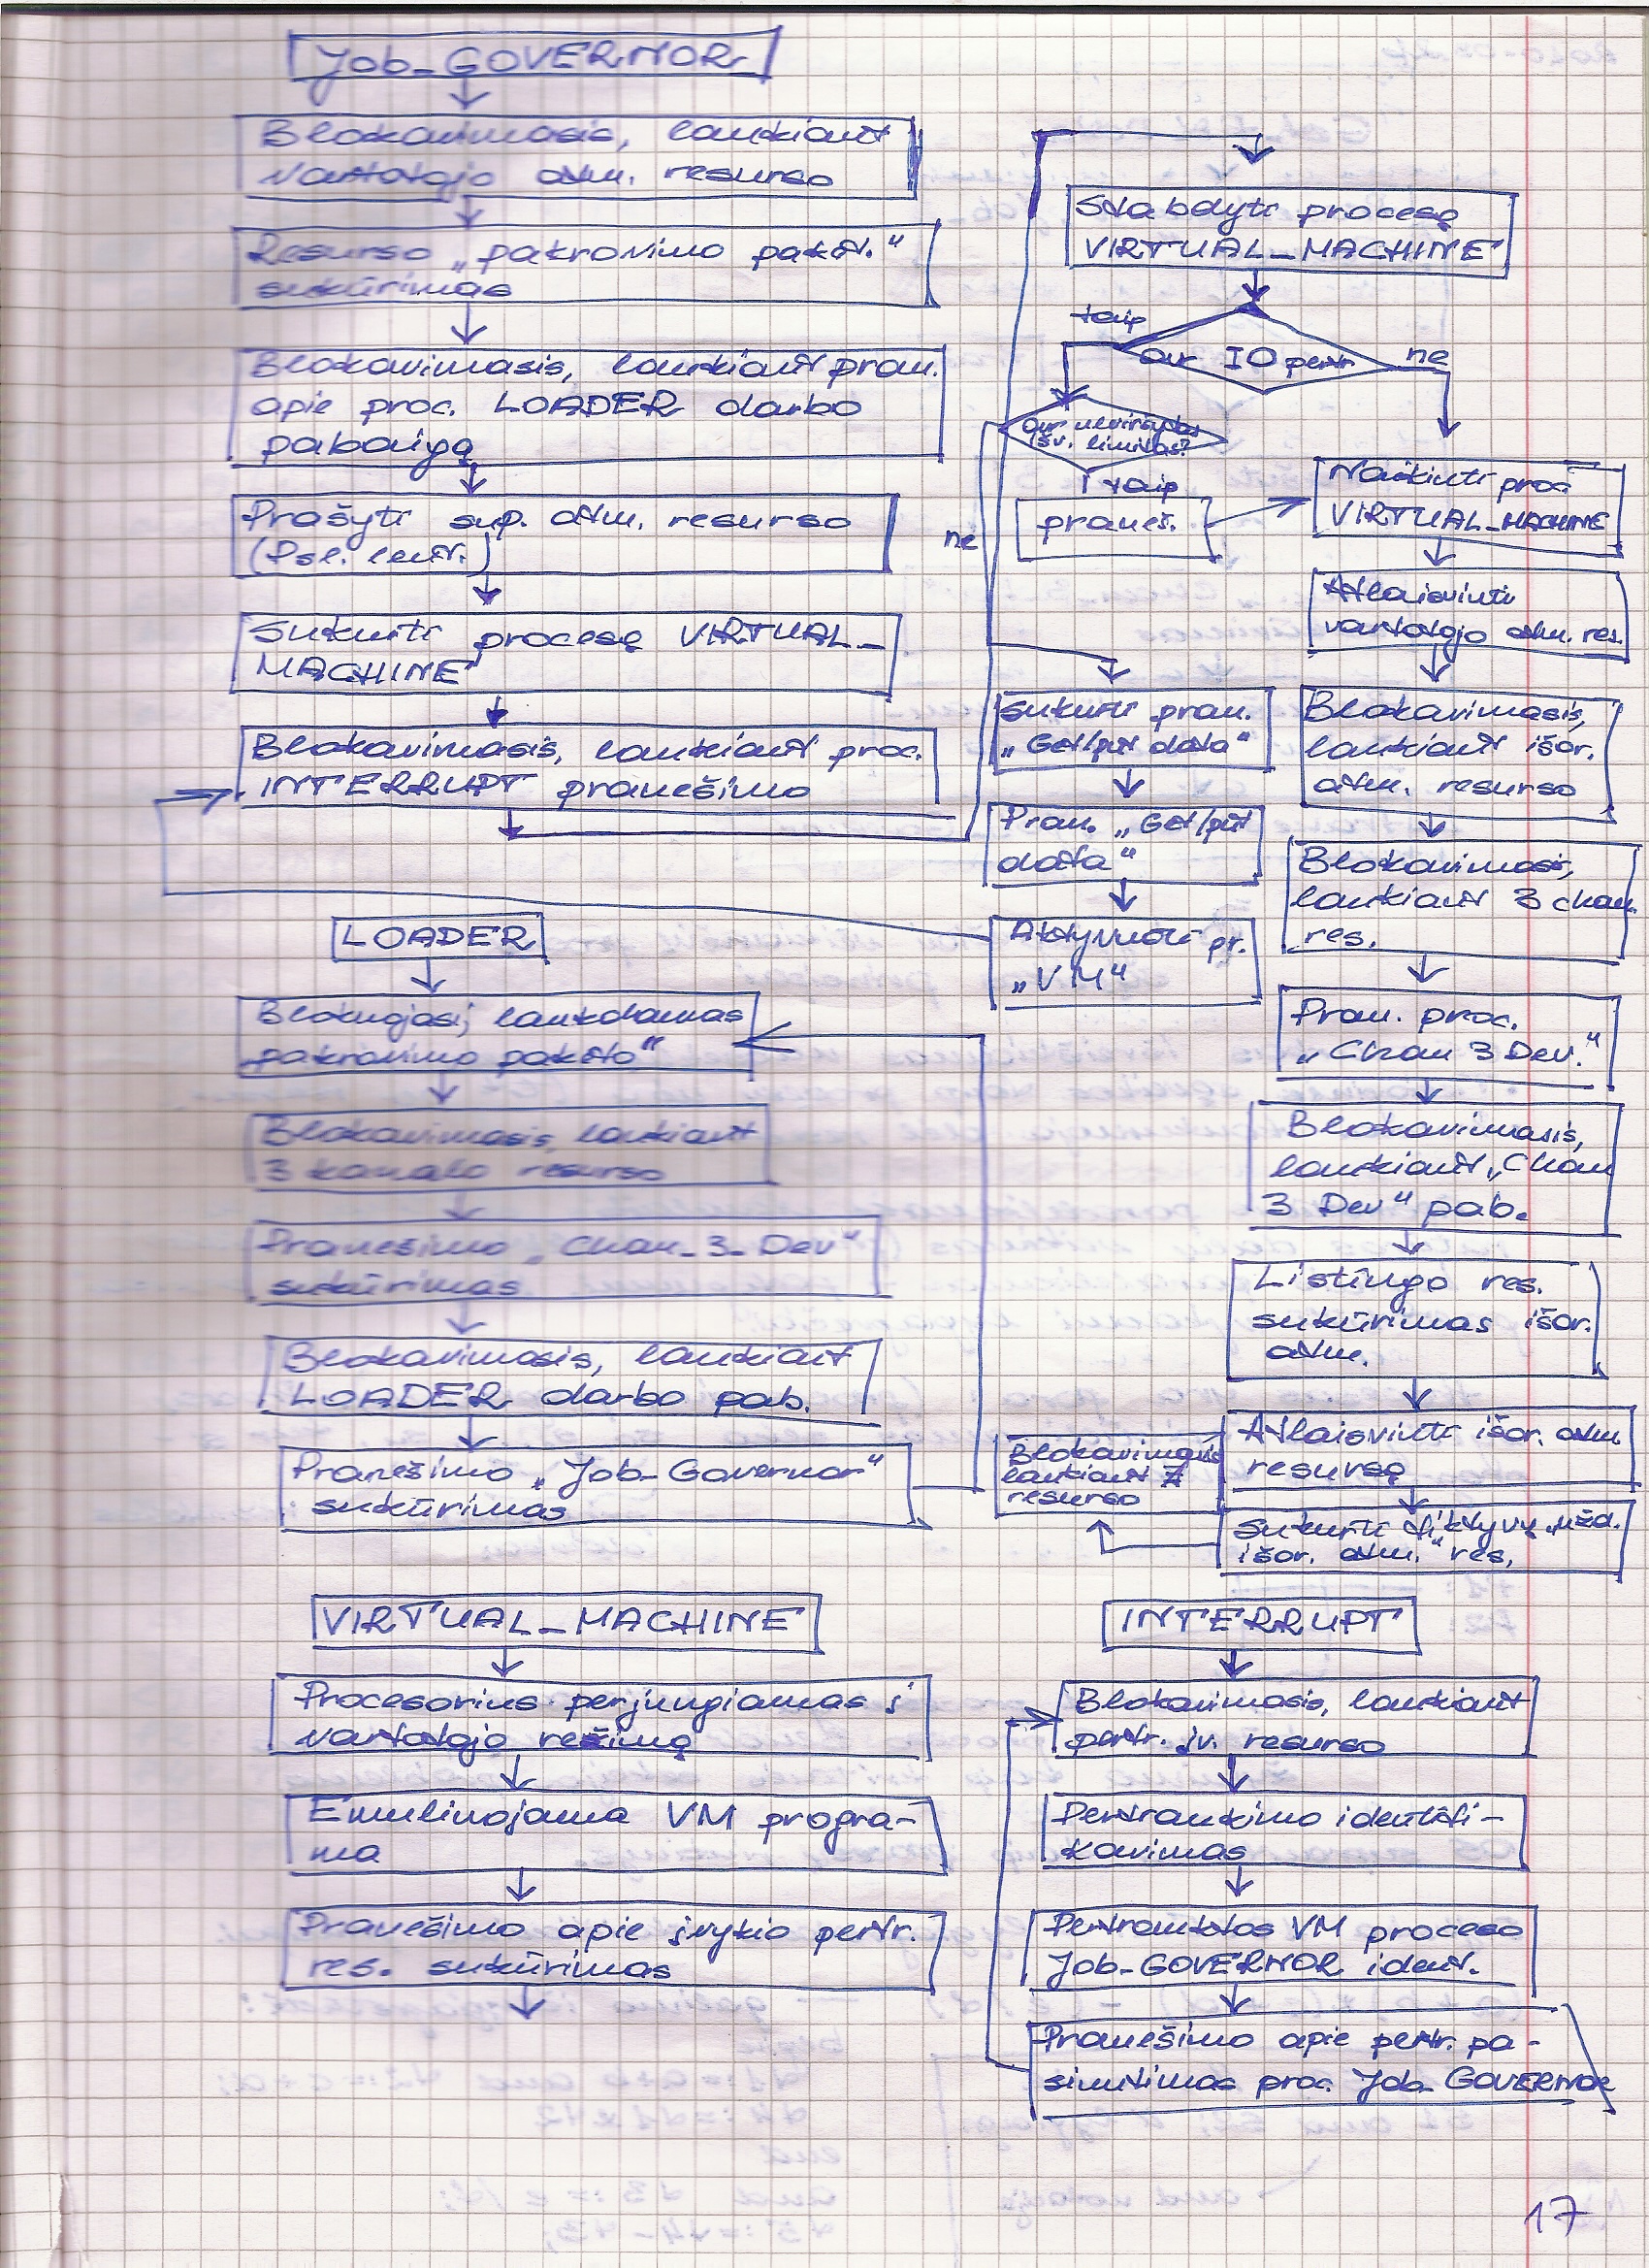 Job_GOVERNOR
Blokavimasis, laukiant
vartotojo atm. resurso
Resurso „pakrovimo paket.“
sukūrimas
Blokavimasis, laukiant pran.
apie proc. LOADER darbo
pabaigą
Prašyti sup. atm. resurso
(Psl. lent.)
Sukurti procesą VIRTUAL_
MACHINE
Blokavimasis, laukiant proc.
INTERRUPT pranešimo
Stabdyti procesą
VIRTUAL_MACHINE
taip
ar IO pertr
ne
ar neviršytas
išv. limitas?
taip
ne
praneš.
Naikinti proc
VIRTUAL_MACHINE
Atlaisvinti
vartotojo atm. res.
Sukurti pran.
„Get/put data“
Pran. „Get/put
data“
Aktyvuoti pr.
„VM“
Blokavimasis,
laukiant išor.
atm. resurso
Blokavimasis,
laukiant 3 chan.
res.
Pran. proc.
„Chan 3 Dev.“
Blokavimasis,
laukiant „Chan
3 Dev“ pab.
Listingo res.
sukūrimas išor.
atm.
Atlaisvinti išor. atm
resursą
Sukurti fiktyvų „užd.
išor. atm.“ res.
Blokavimasis
laukiant
resurso
LOADER
Blokuojasi, laukdamas
„pakrovimo paketo“
Blokavimasis, laukiant
3 kanalo resurso
Pranešimo „Chan_3_Dev“
sukūrimas
Blokavimasis, laukiant
LOADER darbo pab.
Pranešimo „Job-Governor“
sukūrimas
VIRTUAL_MACHINE
Procesorius perjungiamas į
vartotojo režimą
Emuliuojama VM progra-
ma
Pranešimo apie įvykio pertr.
res. sukūrimas
INTERRUPT
Blokavimasis, laukiant
pertr. įv. resurso
Pertraukimo identifi-
kavimas
Pertrauktos VM proceso
Job_GOVERNOR ident.
Pranešimo apie pertr. pa-
siuntimas proc. Job_GOVERNOR
17